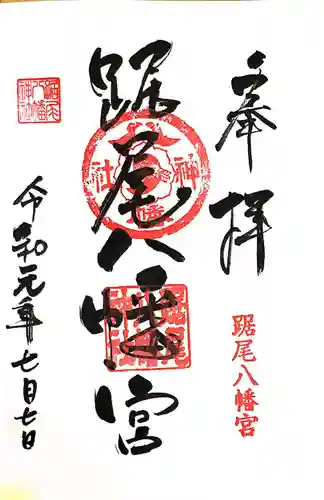 奉拝
踞尾八幡宮
踞尾八幡宮
令和元年七月七日